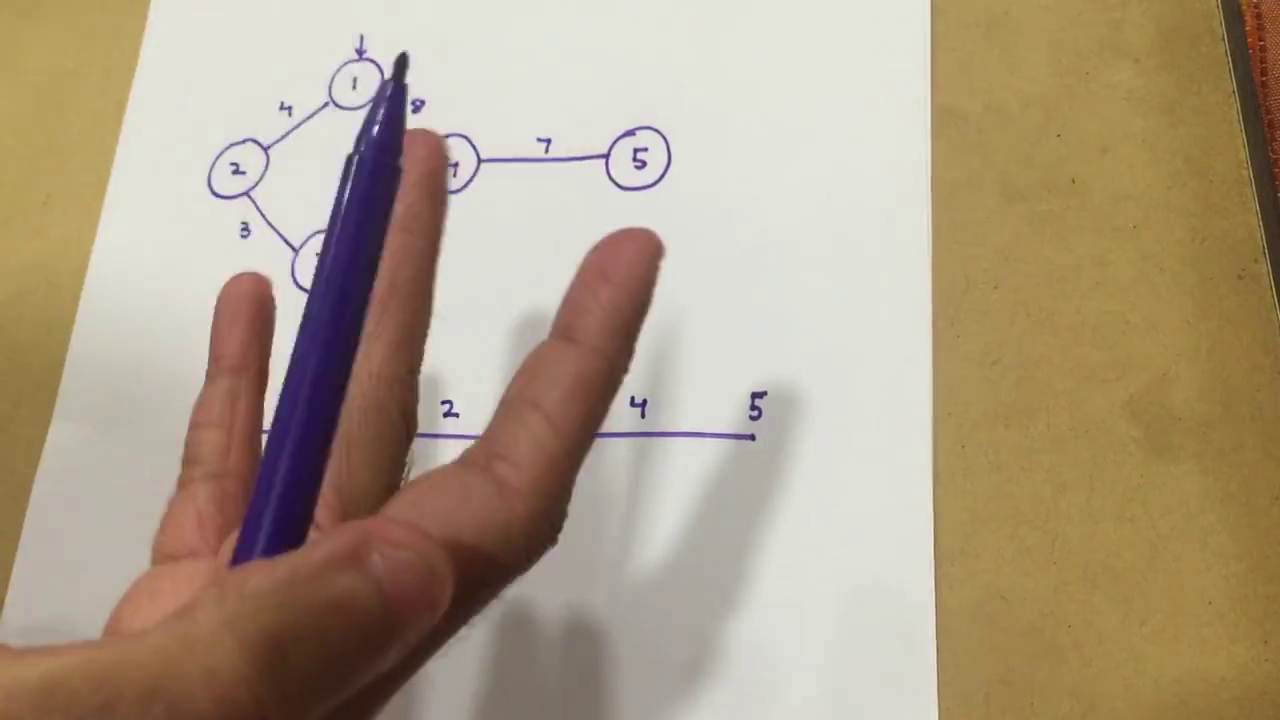 1
4 8
2 7 5
3
2 4 5